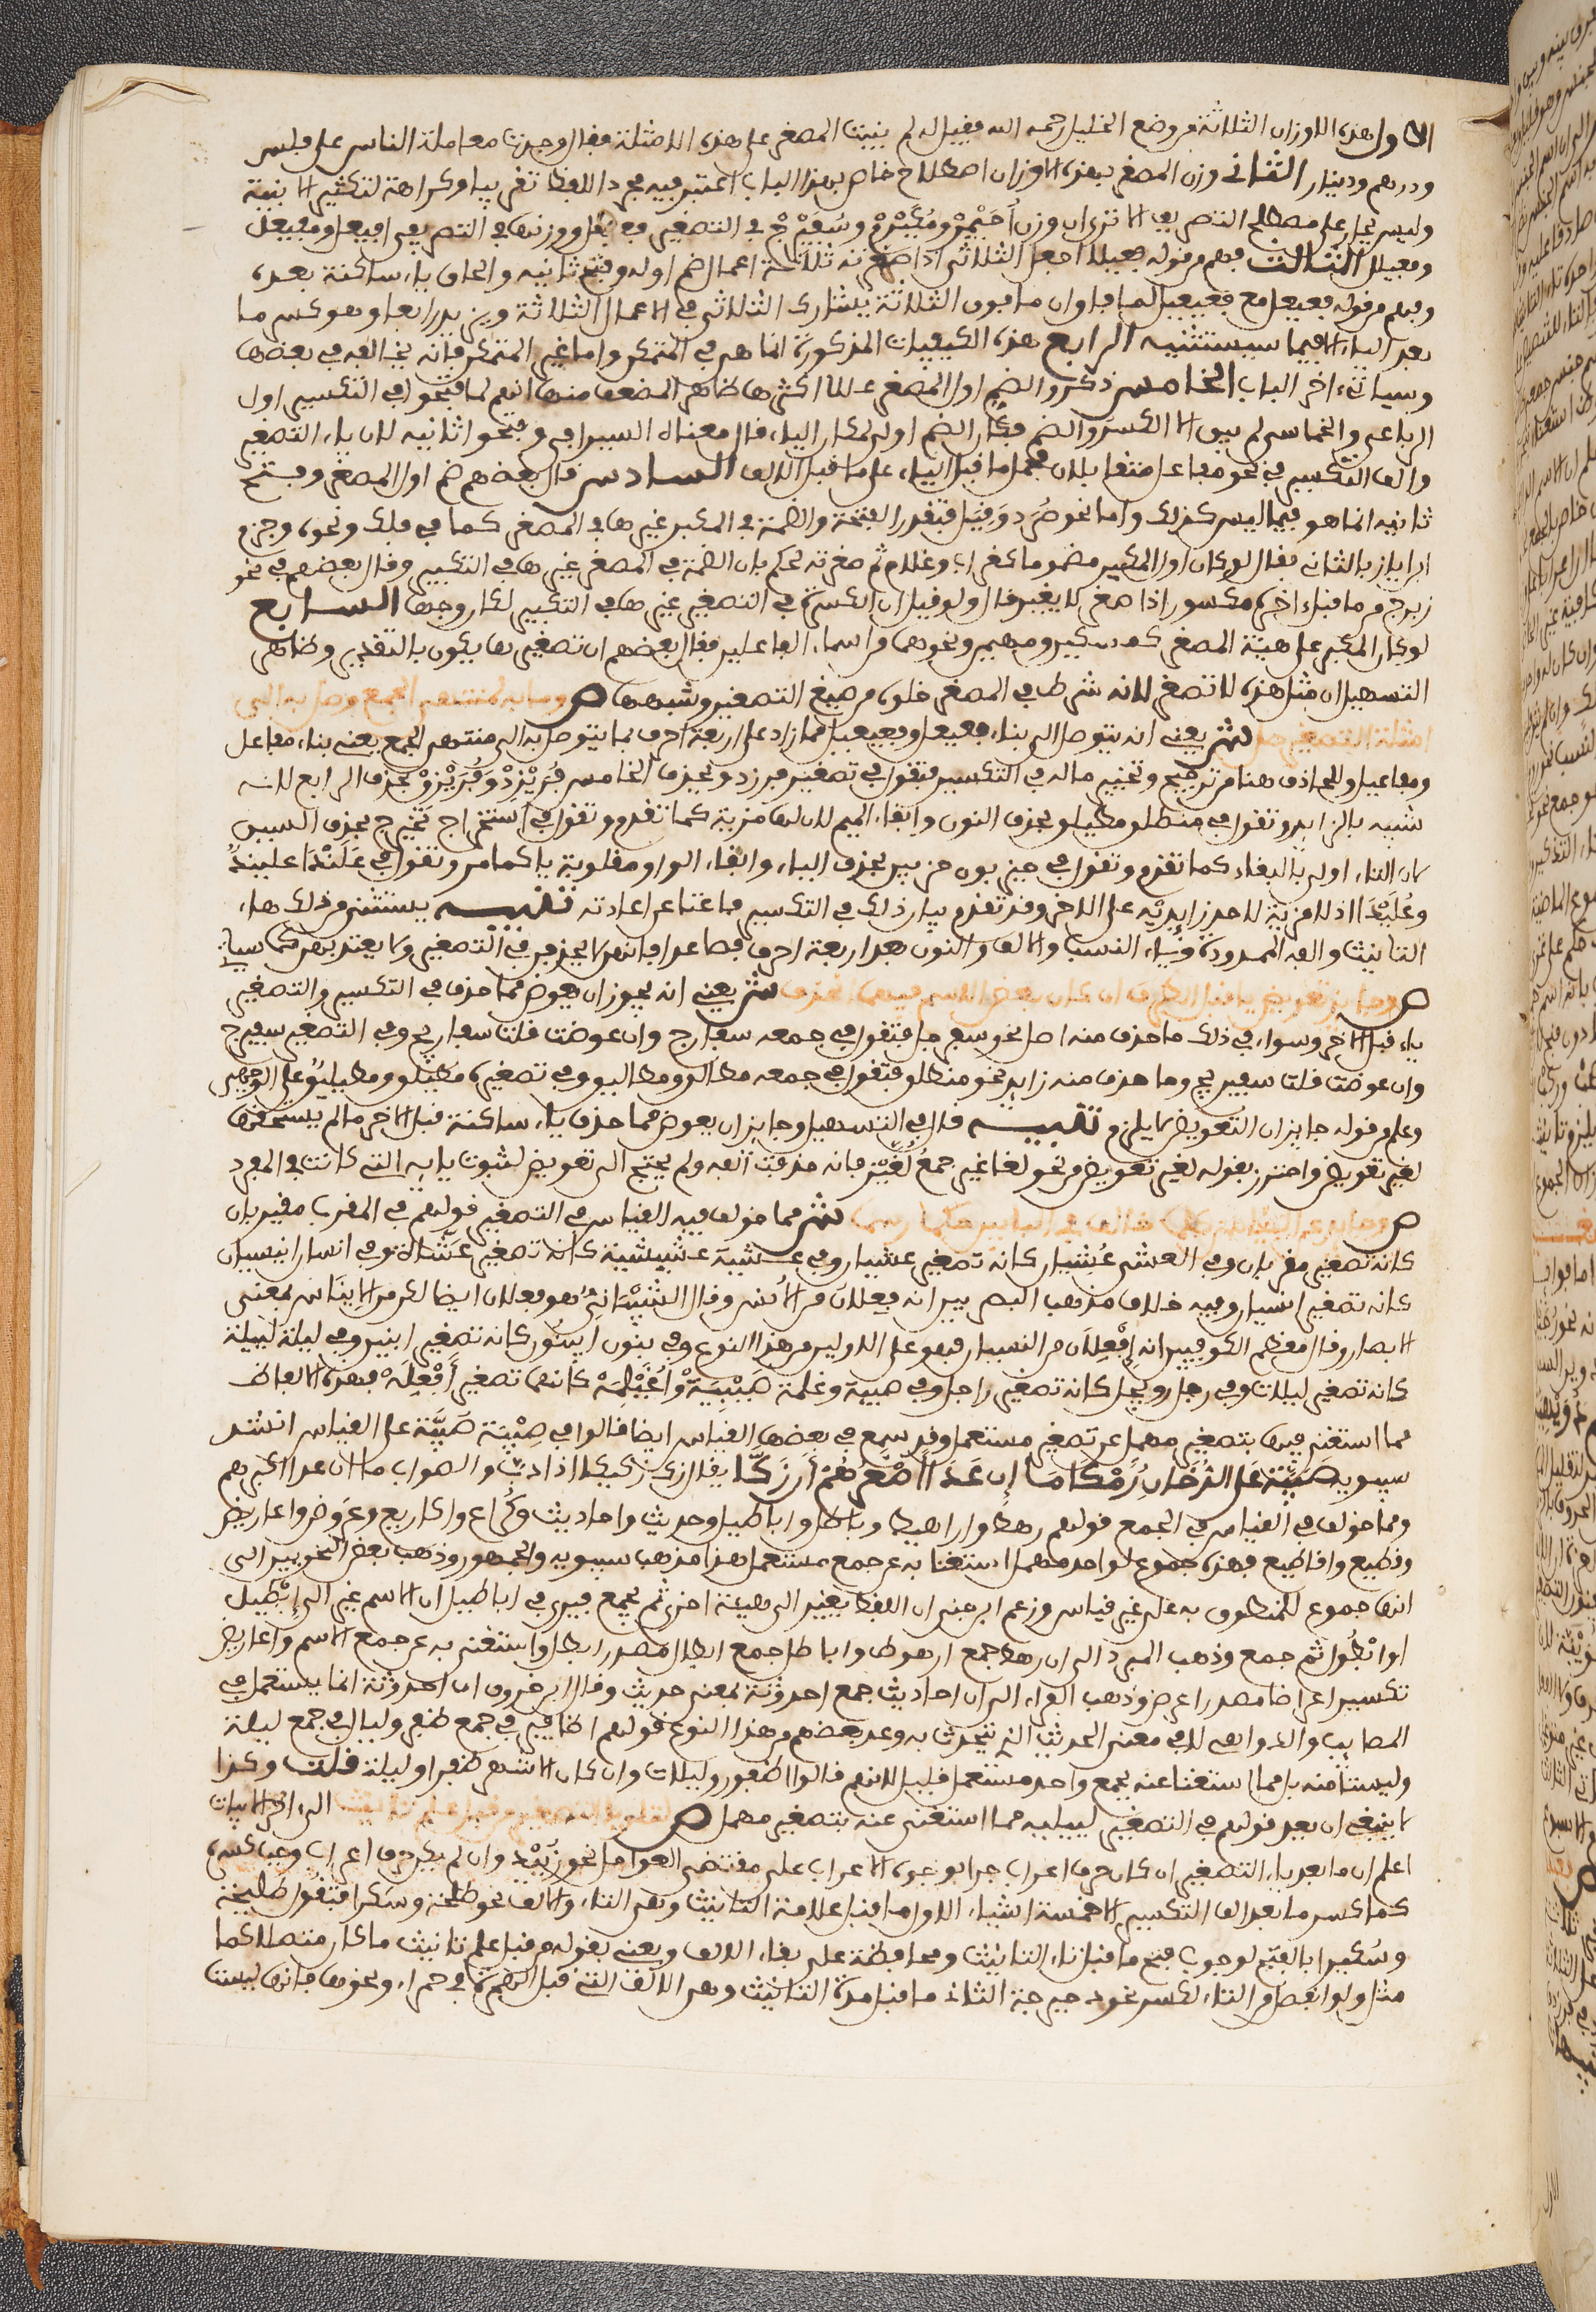 الاول هذه الاوزان الثلاثة من وضع الخليل رحمه الله فقيل له لم بنيت المصغر على هذه الامثلة فقال وجدت معاملة الناس على فلس
ودرهم ودينار الثاني وزن المصغر بهذه الاوزان اصطلاح خاص بهذا الباب اعتبر فيه مجرد اللفظ تقريبا وكراهة لتكثير الابنية
وليس بجار على مصطلح التصريف الا ترى ان وزن أُحَيْمِرْ ومُكَيْرِمْ وسُفَيْرِجْ في التصغير فعيعل ووزنها في التصريف افيعل ومفيعل
وفعيلل الثالث فهم من قوله فعيلا اجعل الثلاثي اذا صغرته ثلاثة اعمال ضم اوله وفتح ثانيه والحاق ياء ساكنة بعده
وفهم من قوله فعيعل مع فعيعيل لما فاق ان ما فوق الثلاثة يشارك الثلاثي في الاعمال الثلاثة ويزيد رابعا وهو كسر ما
بعد الياء الا فيما سيستثنيه الرابع هذه الكيفيات المذكورة انما هي في المتمكن واما غير المتمكن فانه يخالفه في بعضها
وسياتي ءاخر الباب الخامس ذكروا لضم اول المصغر عللا اكثرها ظاهر الضعف منها انهم لما فتحوا في التكسير اول
الرباعي والخماسي لم يبق الا الكسر والضم فكان الضم اولى لمكان الياء قال معناه السيرافي وفتحوا ثانيه لان ياء التصغير
والف التكسير في نحو مفاعل متقابلان فحمل ما قبل الياء على ما قبل الالف السادس قال بعضهم ضم اول المصغر وفتح
ثانيه انما هو فيما ليس كذلك واما نحو صُرَد وَ فتقدر الفتحة والضمة في المكبر غيرها في المصغر كما في فلك ونحوه وجزم
ابن اياز بالثاني فقال لو كان اول المكبر مضموما كغراب وغلام ثم صغرته لحكم بان الضمة في المصغر غيرها في التكبير وقال بعضهم في نحو
زبرج مما قبل اخره مكسور اذا صغر لا يغير قال ولو قيل ان الكسرة في التصغير غيرها في التكبير لكان وجها السابع
لو كان المكبر على هيئة المصغر كمسيطر ومهيمن ونحوهما من اسماء الفاعلين فقال بعضهم ان تصغيرها يكون بالتقدير وظاهر
التسهيل ان مثل هذه لا تصغر لانه شرط في المصغر خلوه من صيغ التصغير وشبهها ص وما به لمنتهى الجمع وصل به الى
امثلة التصغير صل ش يعني انه يتوصل الى بناء فعيعل وفعيعيل فيما زاد على اربعة احرف بما يتوصل به الى منتهى الجمع يعني بناء مفاعل
ومفاعيل وللحاذف هنا من ترجيح وتخيير ما له في التكسير فتقول في تصغير فرزدق بحذف الخامس فُرَيْزِدْ وفُرَيْزِقْ بحذف الرابع لانه
شبيه بالزايد وتقول في منطلق مطيلق بحذف النون وابقاء الميم لان لها مزية كما تقدم وتقول في استخراج تخيرج بحذف السين
لان التاء اولى بالبقاء كما تقدم وتقول في حيزبون حزيبين بحذف الياء وابقاء الواو مقلوبة ياء كما مر وتقول في عَلَنْدَا علينِدٌ
وعُلَيْدٌ اذ لا مزية لاحد زايديه على الاخر وقد تقدم بيان ذلك في التكسير فاغنا عن اعادته تنبيه يستثنى من ذلك هاء
التانيث والفه الممدودة وياء النسب والالف والنون بعد اربعة احرف فصاعدا فانهن لا يحذفن في التصغير ولا يعتد بهن كما سياتي
ص وجايز تعويض يا قبل الطرف ان كان بعض الاسم فيهما انحذف ش يعني انه يجوز ان يعوض مما حذف في التكسير والتصغير
ياء قبل الاخر وسواء في ذلك ما حذف منه اصل نحو سفرجل فتقول في جمعه سفارج وان عوضت قلت سفاريج وفي التصغير سفيرج
وان عوضت قلت سفيريج وما حذف منه زايد نحو منطلق فتقول في جمعه مطالق ومطاليق وفي تصغيره مطيلق ومطيليق على الوجهين
وعلم من قوله جايز ان التعويض لا يلزم تنبيه قال في التسهيل وجايز ان يعوض مما حذف ياء ساكنة قبل الاخر ما لم يستحقها
لغير تعويض واحترز بقوله لغير تعويض من نحو لغاغيز جمعُ لُغَّيْز فانه حذفت الفه ولم يحتج الى تعويض لثبوت يايه التي كانت في المفرد
ص وحايد عن القياس كل ما خالف في البابين حكما رسما ش مما خولف فيه القياس في التصغير قولهم في المغرب مغيربان
كانه تصغير مغربان وفي العشي عُشيان كانه تصغير عشيان وفي عشية عشيشية كانه تصغير عَشَّاة وفي انسان انيسيان
كانه تصغير انسيان وفيه خلاف مذهب البصريين انه فِعلان من الأنس وقال الشيْبَانِيُّ هو فعلان ايضا لكن من الايناس بمعنى
الابصار وقال معظم الكوفيين انه إفْعِلان من النسيان فهو على الاولين من هذا النوع وفي بنون ابينون كانه تصغير ابنين وفي ليلة لييلية
كانه تصغير ليلات وفي رجل رويجل كانه تصغير راجل وفي صبية وغلمة صَيْبِيَةٌ وأُغَيْلِمَةٌ كانهما تصغير أَفْعِلَهْ فهذه الالفاظ
مما استغني فيها بتصغير مهمل عن تصغير مستعمل وقد سمع في بعضها القياس ايضا قالوا في صِبْيَة صُبَيَّة على القياس انشد
سيبويه صُبَيَّةً على الدُّخَانِ رُمْكا ما إن عَدَا أصْغَرُهُمْ أَن زَكَّا يقال زك زكيكا اذا دبّ والصواب ما ان عدا اكبرهم
ومما خولف في القياس في الجمع قولهم رهط واراهيط وباطل واباطيل وحديث واحاديث وكُراع واكاريع وعَروض واعاريض
وقطيع واقاطيع فهذه جموع لواحد مهمل استغنا به عن جمع مستعمل هذا مذهب سيبويه والجمهور وذهب بعض النحويين الى
انها جموع للمنطوق به على غير قياس وزعم ابن جني ان اللفظ يغير الى هيئة اخرى ثم يجمع فيرى في اباطيل ان الاسم غير الى إبْطِيل
او ابْطُول ثم جمع وذهب المبرد الى ان رهط جمع ارهوط واباطل جمع ابطال مصدر ابطل واستغني به عن جمع الاسم واعاريض
تكسير اعراضا مصدر اعرض وذهب الفراء الى ان احاديث جمع احدوثة بمعنى حديث وقال ابن خروف ان احدوثة انما يستعمل في
المصايب والدواهي لا في معنى الحديث الذي يتحدث به وعد بعضهم من هذا النوع قولهم اظافير في جمع ظفر وليال في جمع ليلة
وليستا منه بل مما استغنا عنه بجمع واحد مستعمل قليل لانهم قالوا اظفور وليلات وان كان الاشهر ظفرا وليلة قلت وكذا
لا ينبغي ان يعد قولهم في التصغير لييلية مما استغنى عنه بتصغير مهمل ص لتلو يا التصغير من قبل علم تانيث الى اخر الابيات
اعلم ان ما بعد ياء التصغير ان كان حرف اعراب جرا بوجوه الاعراب على مقتضى العوامل نحو زُيَيْد وان لم يكن حرف اعراب وجب كسره
كما كسر ما بعد الف التكسير الا خمسة اشياء الاول ما قبل علامة التانيث وهي التاء والالف نحو طلحة وسكرا فتقول طليحة
وسُكيرا بالفتح لوجوب فتح ما قبل تاء التانيث ومحافظة على بقاء الالف ويعني بقوله من قبل علم تانيث ما كان متصلا كما
مثل ولو انفصل من التاء لكسر نحو دحيرجة الثاني ما قبل مدة التانيث وهي الالف التي قبل الهمزة في حمراء ونحوها فانها ليست